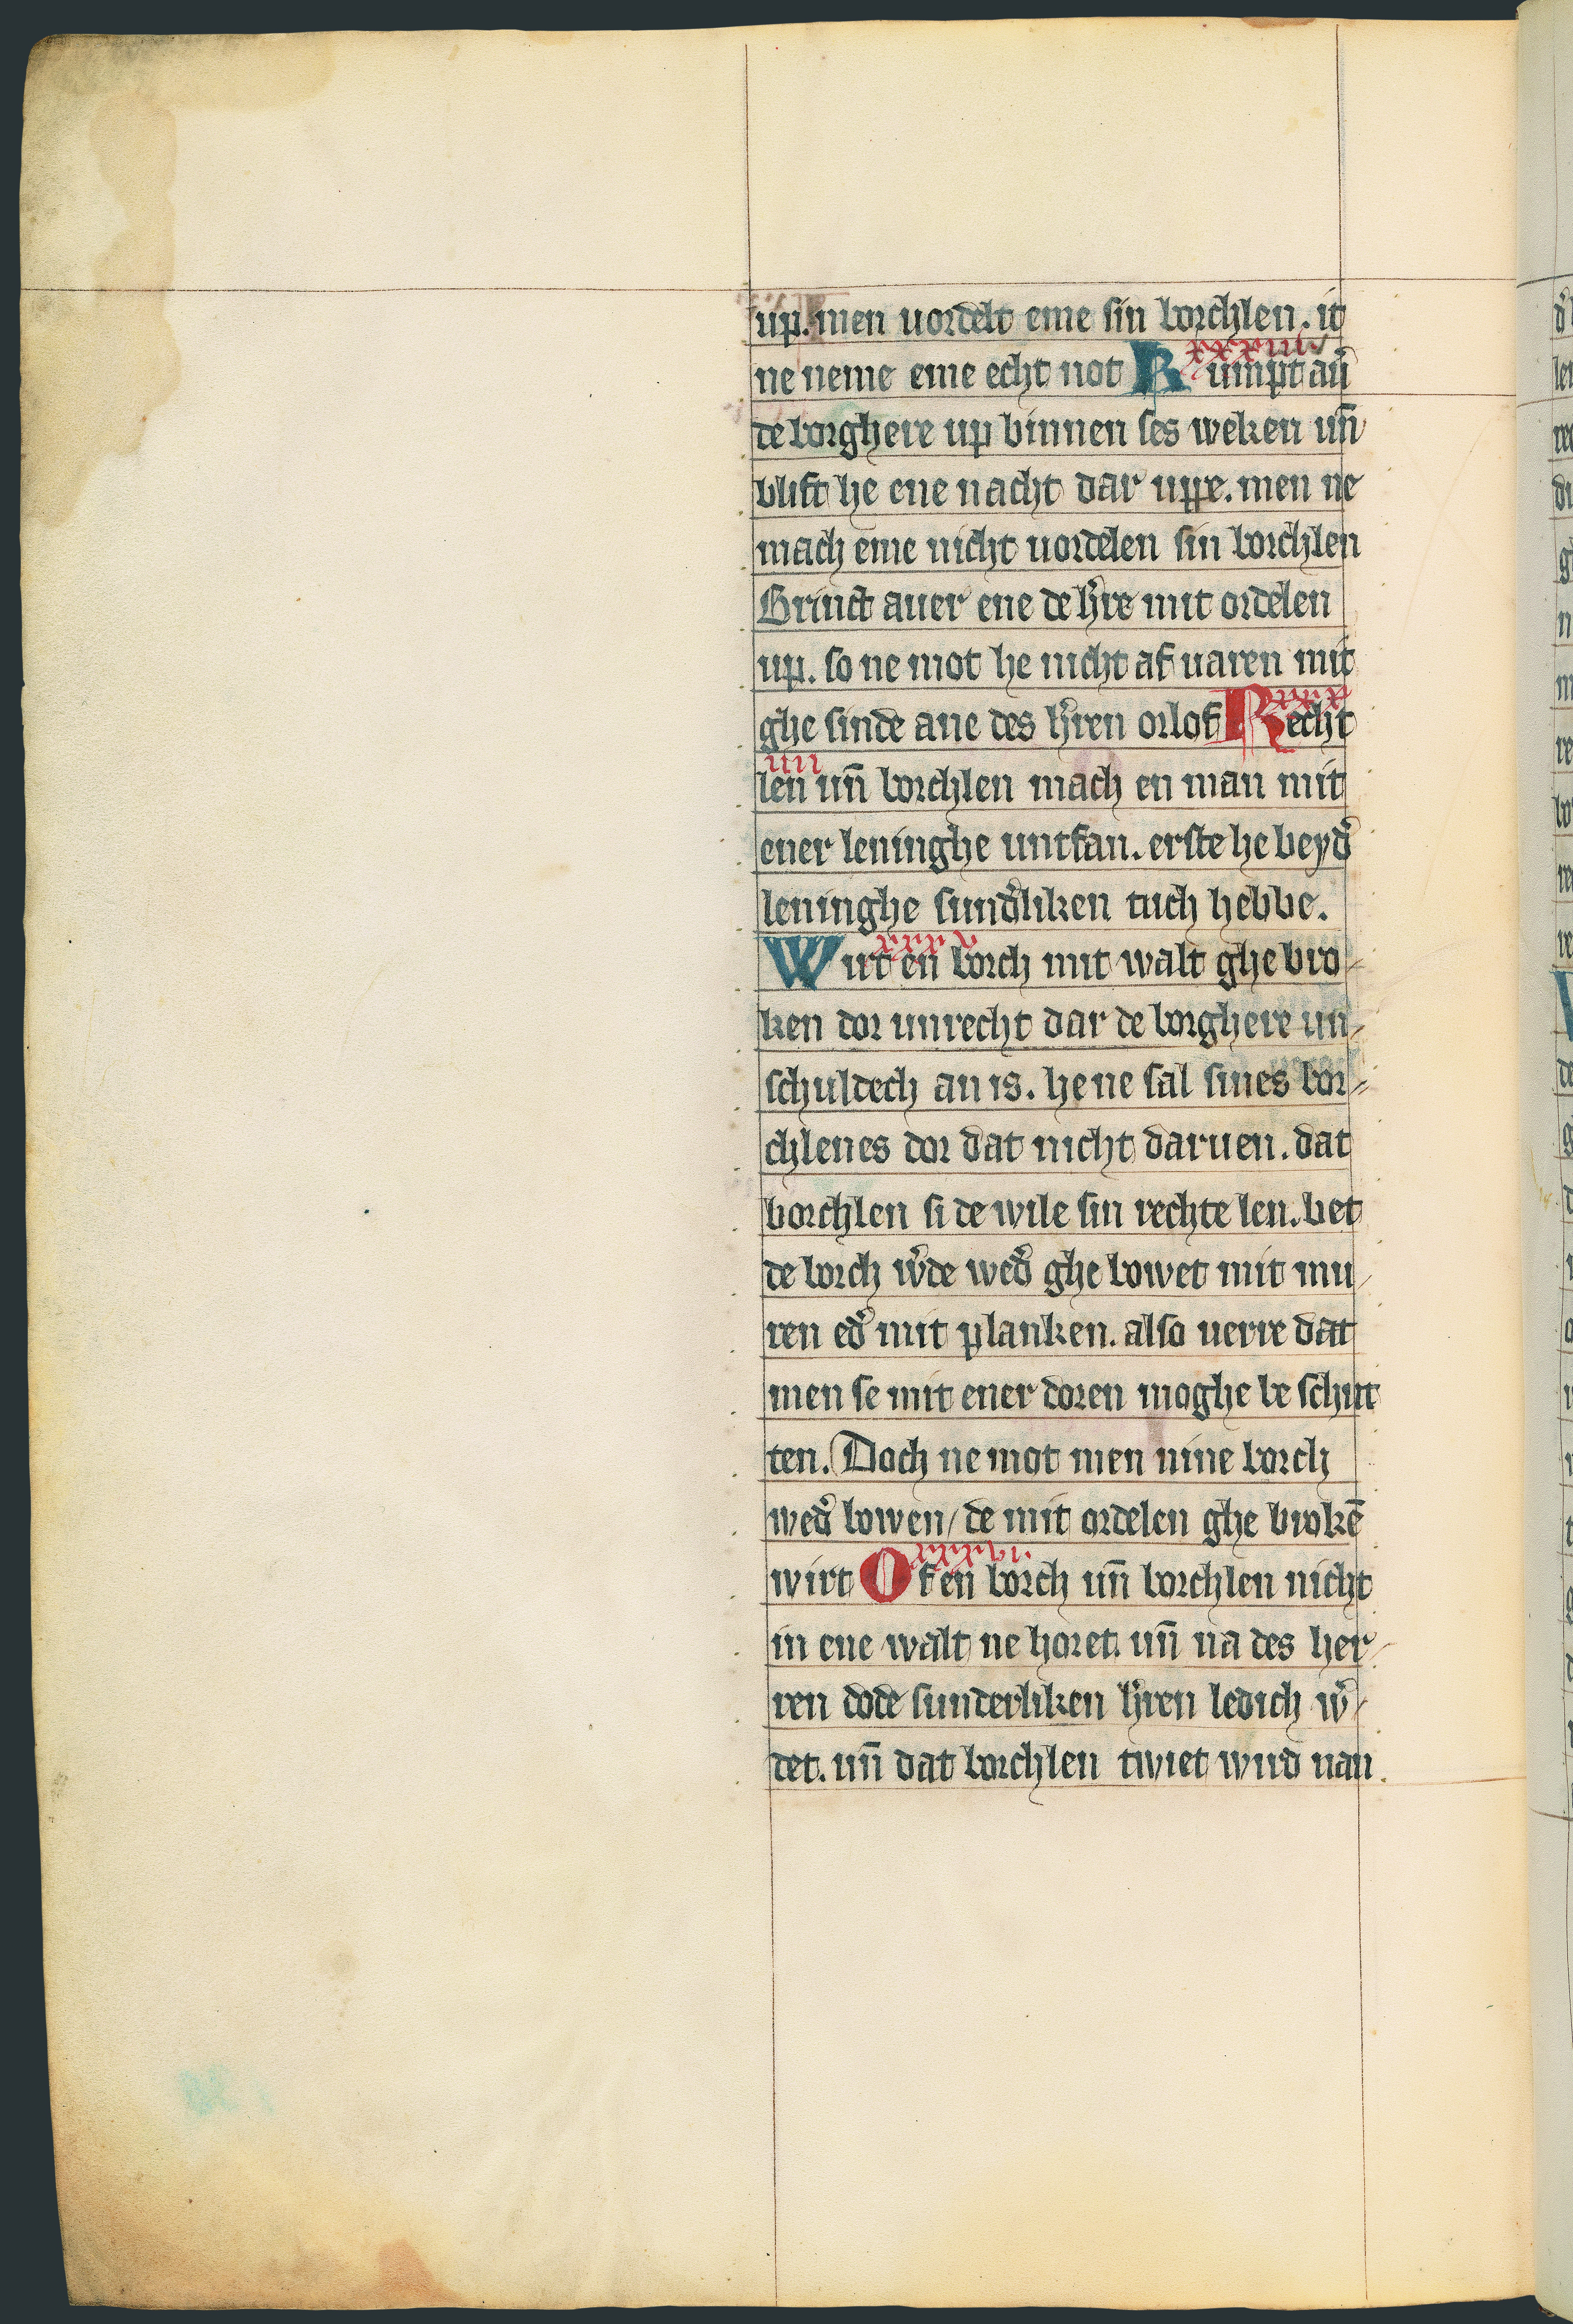 up. men uordelt eme sin borchlen. it
xxxxiii
ne neme eme echt not Kumpt au᷑
de borghere up binnen ses weken un̄
blift he ene nacht dar uppe. men ne
mach eme nicht uordelen sin borchlen
Brinct auer ene de h᷑re mit ordelen
up. so ne mot he nicht af uaren mit
xxxx
ghe sinde ane des h᷑ren orlof Recht
iiii
len un̄ borchlen mach en man mit
ener leninghe untfan. erste he beyd᷑
leninghe sund᷑liken tuch hebbe.
xxxxv
Wirt en borch mit walt ghe bro-
ken dor unrecht dar de borghere un-
schuldech an is. he ne sal sines bor-
chlenes dor dat nicht daruen. dat
borchlen si de wile sin rechte len. bet
de borch w᷑de wed᷑ ghe bowet mit mu-
ren ed᷑ mit planken. also uerre dat
men se mit ener doren moghe be schut
ten. Doch ne mot men nine borch
wed᷑ bowen / de mit ordelen ghe brokē
xxxxvi
wirt Of en borch un̄ borchlen nicht
in ene walt ne horet. un̄ na des her-
ren dode sunderliken h᷑ren ledich w᷑-
det. un̄ dat borchlen twiet wird uan